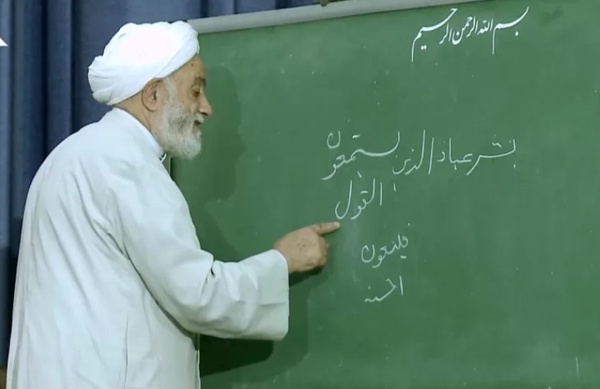 بسم الله الرحمن الرحیم
بشر عباد الذین یستمعون
القول
فیتبعون
احسنه